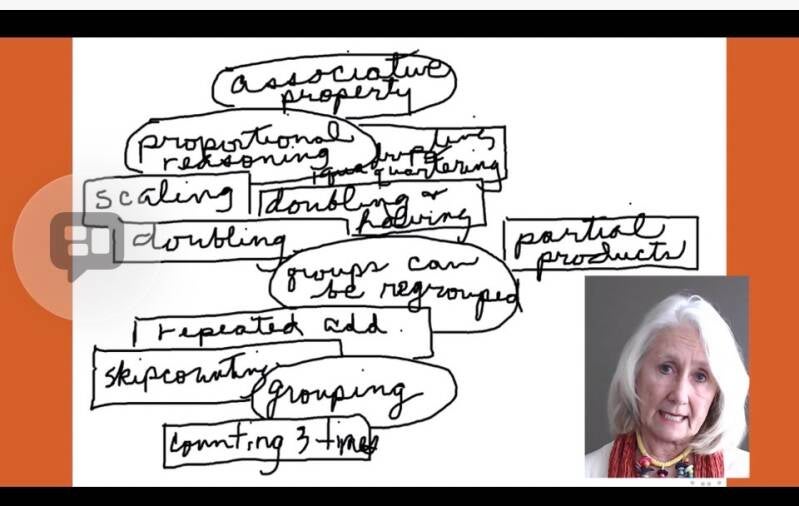 associative
property
proportional
reasoning
quartering
scaling
doubling &
halving
doubling
partial
products
groups can
be regrouped
repeated add.
skipcounting
grouping
counting 3 times